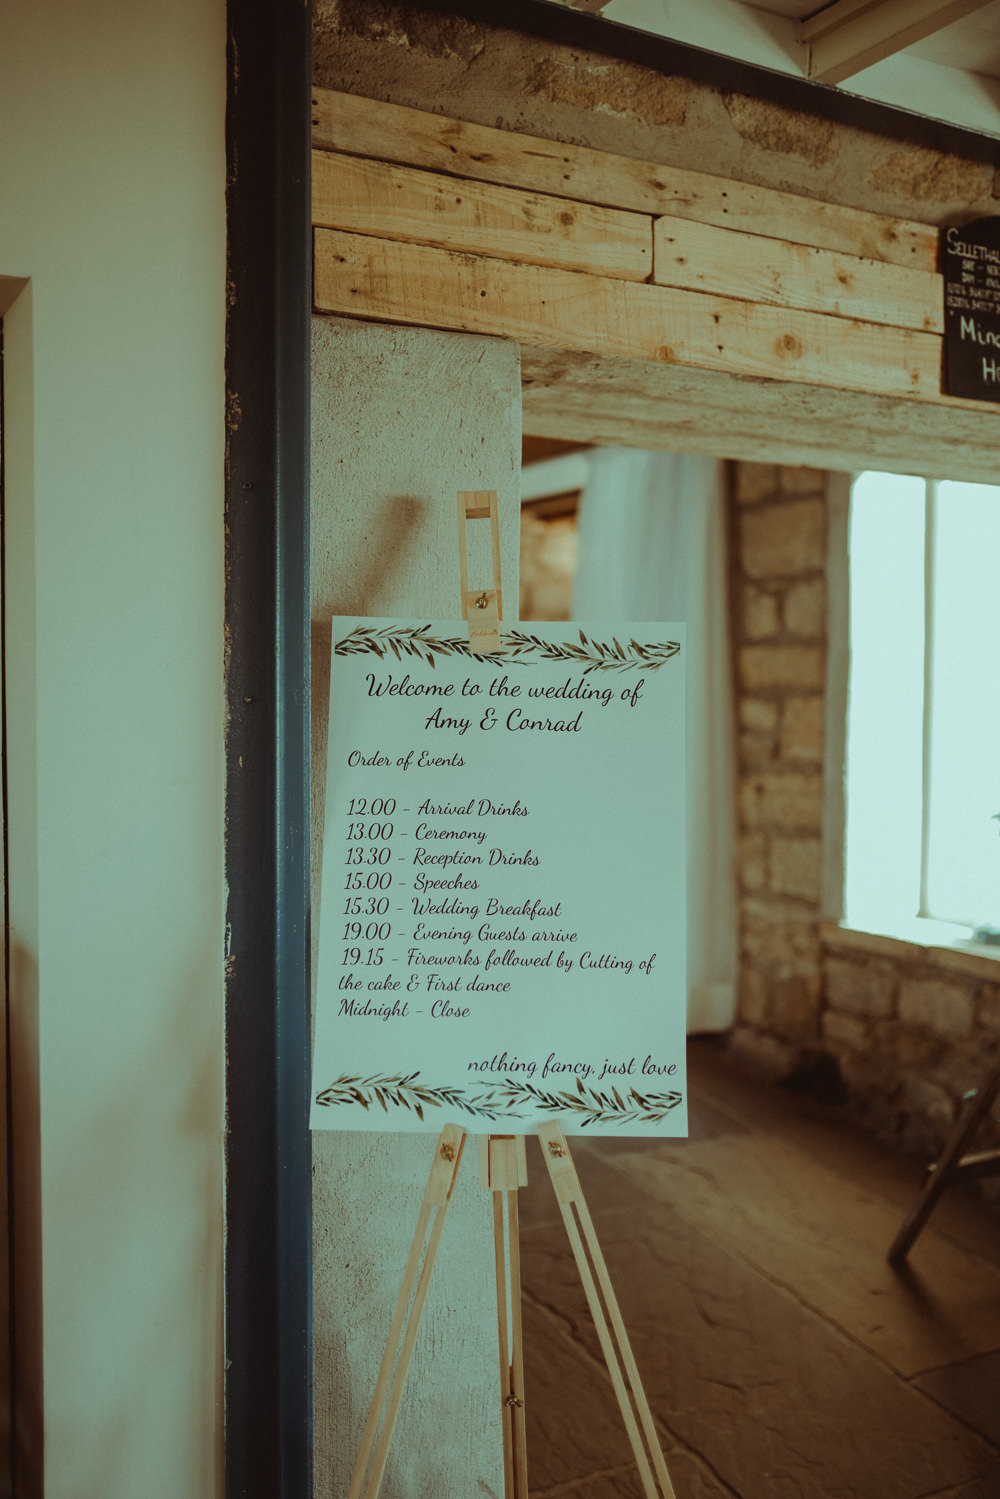 Welcome to the wedding of
Amy & Conrad
Order of Events
12.00 - Arrival Drinks
13.00 - Ceremony
13.30 - Reception Drinks
15.00 - Speeches
15.30 - Wedding Breakfast
19.00 - Evening Guests arrive
19.15 - Fireworks followed by Cutting of
the cake & First dance
Midnight - Close
nothing fancy, just love